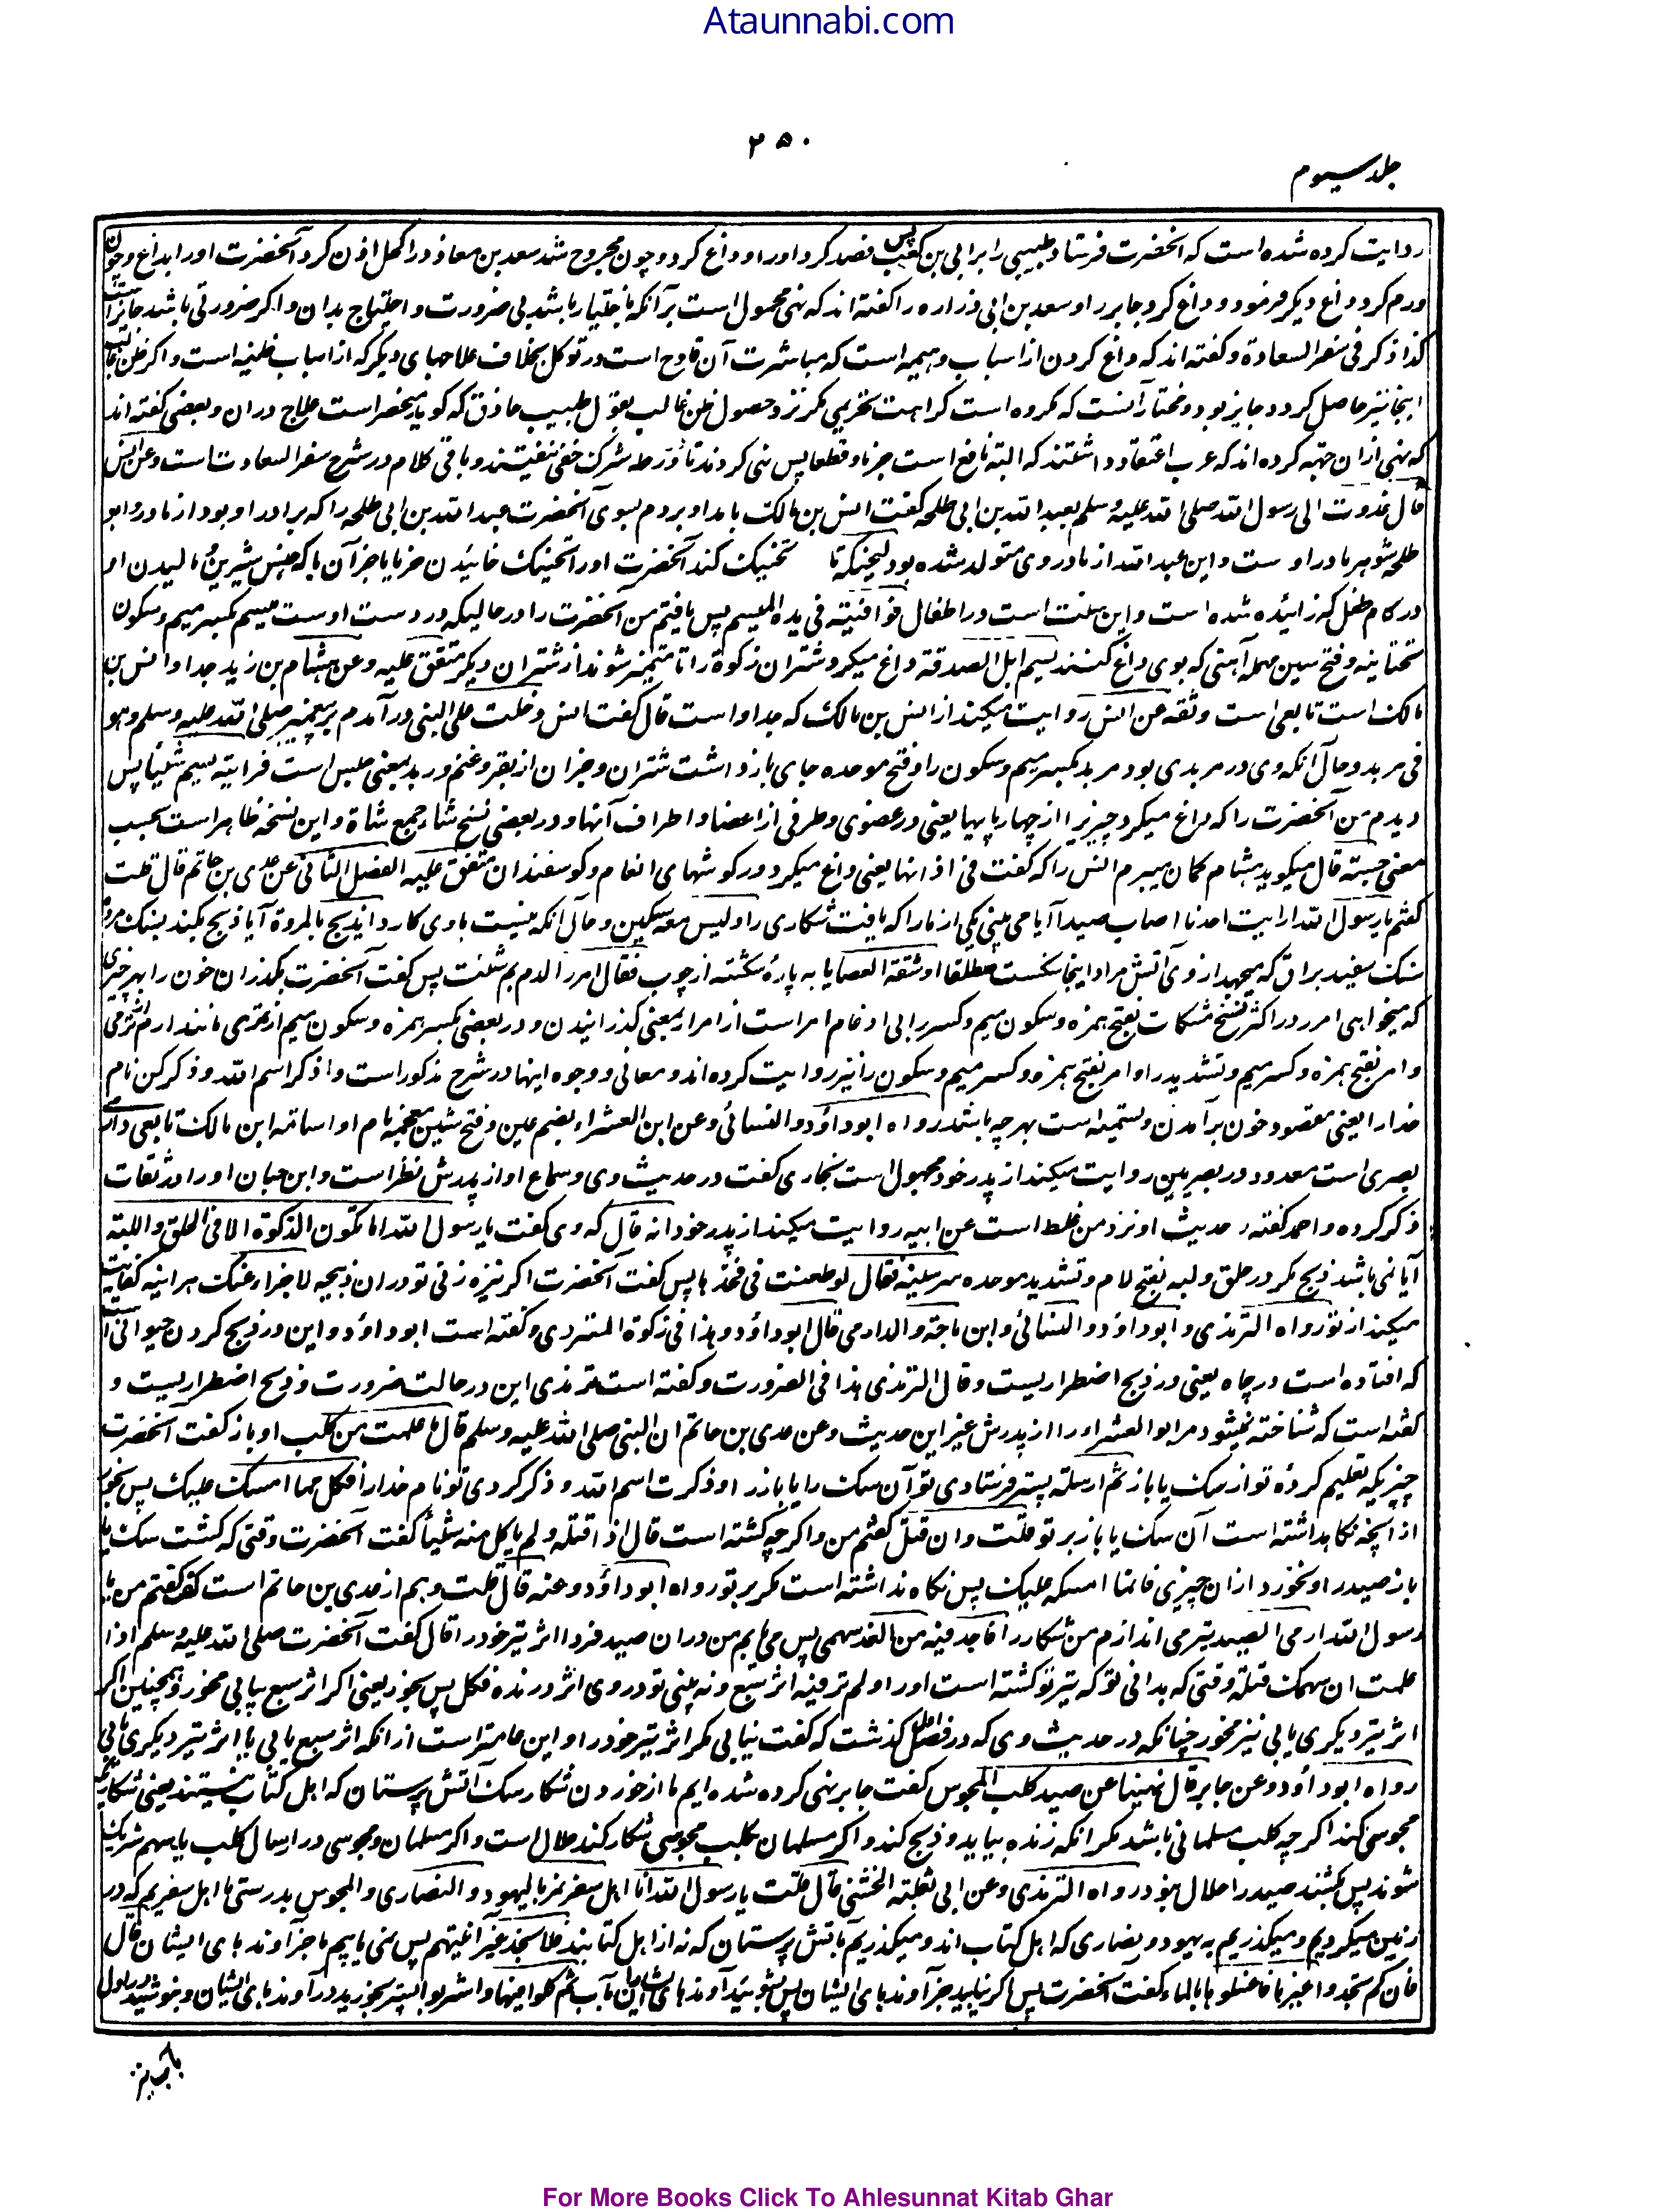 Ataunnabi.com
۲۵۰
جلد سیوم
روایت کرده شده است که آنحضرت فرستاد طبیبی را بر ابی بن کعب پس فصد کرد اورا و داغ کرد و چون مجروح شد سعد بن معاذ در اکحل اذن کرد آنحضرت اورا بداغ و چون
ورم کرد داغ دیگر فرمود و داغ کرد جابر را و سعد بن ابی زراره را گفته اند که نهی محمول است بر آنکه باختیار باشد بی ضرورت و احتیاج بدان و اگر ضرورتی باشد جائز است
کذا ذکر فی سفر السعادة و گفته اند که داغ کردن از اسباب وهمیه است که مباشرت آن قادح است در توکل بخلاف علاجهای دیگر که از اسباب ظنیه است و اگر ظن غالب
اینجا نیز حاصل گردد جایز بود و مختار آنست که مکروه است کراهت تحریمی مگر نزد حصول ظن غالب بقول طبیب حاذق که گوید منحصر است علاج در ان و بعضی گفته اند
که نهی ازان جهة کرده اند که عرب اعتقاد داشتند که البته نافع است جزما و قطعا پس نهی کردند تا در ورطه شرک خفی نیفتند و باقی کلام در شرح سفر السعادت است وعن انس
قال غدوت الی رسول الله صلی الله علیه وسلم بعبد الله بن ابی طلحه گفت انس بن مالک بامداد بردم بسوی آنحضرت عبد الله بن ابی طلحه را که برادر او بود از مادر و ابو
طلحه شوهر مادر اوست و این عبد الله از مادر وی متولد شده بود لیحنکه تا تحنیک کند آنحضرت اورا تحنیک خائیدن خرما یا جز آن با که جنس شیرین و مالیدن او
در کام طفل که زائیده شده است و این سنت است در اطفال فوافیته فی یده المیسم پس یافتم من آنحضرت را در حالیکه در دست اوست میسم بکسر میم و سکون
تحتانیه و فتح سین مهمله آهنی که بوی داغ کنند یسم ابل الصدقة داغ میکرد شتران زکوة را تا متمیز شوند از شتران دیگر متفق علیه وعن هشام بن زید جد او انس بن
مالک است تابعی است و ثقه عن انس روایت میکند از انس بن مالک که جد او است قال گفت انس دخلت علی النبی در آمدم بر پیغمبر صلی الله علیه وسلم وهو
فی مربد و حال آنکه وی در مربدی بود مربد بکسر میم و سکون را و فتح موحده جای بازداشت شتران و جز ان از بقر و غنم و ربد بمعنی حبس است فرایته یسم شیئا پس
دیدم من آنحضرت را که داغ میکرد چیزیرا از چهارپایها یعنی در عضوی و طرفی از اعضا و اطراف آنها و در بعضی نسخ شاء جمع شاة و این نسخه ظاهر است بحسب
معنی حسبته قال میگوید هشام گمان میبرم انس را که گفت فی اذانها یعنی داغ میکرد در گوشهای انعام و گوسفندان متفق علیه الفصل الثانی عن عدی بن حاتم قال قلت
گفتم یا رسول الله ارایت احدنا اصاب صیدا آیا می بینی یکی از مارا که یافت شکاری را و لیس معه سکین و حال آنکه نیست با وی کارد ایذبح بالمروة آیا ذبح بکند بسنگ مروه
سنگ سفید براق که میجهد از وی آتش مراد اینجا سنگست مطلقا او شقة العصا یا به پارهٔ شکسته از چوب فقال امرر الدم بم شئت پس گفت آنحضرت بگذران خون را بهر چیزی
که میخواهی امرر در اکثر نسخ مشکات بفتح همزه و سکون میم و کسر را بی ادغام امر است از امرار بمعنی گذرانیدن و در بعضی بکسر همزه و سکون میم از مری مانند ارم از رمی
و امر بفتح همزه و کسر میم و تشدید را و امر بفتح همزه و کسر میم و سکون را نیز روایت کرده اند و معانی و وجوه اینها در شرح مذکور است واذکر اسم الله و ذکر کن نام
خدارا یعنی مقصود خون برآمدن و تسمیه است بهر چه باشد رواه ابو داؤد والنسائی وعن ابی العشراء بضم عین و فتح شین معجمه نام او اسامه ابن مالک تابعی دارمی
بصری است معدود در بصریین روایت میکند از پدر خود مجهول است بخاری گفت در حدیث وی و سماع او از پدرش نظر است و ابن حبان اورا در ثقات
ذکر کرده و احمد گفته حدیث او نزد من غلط است عن ابیه روایت میکند از پدر خود انه قال که وی گفت یا رسول الله اما تکون الذکوة الا فی الحلق واللبة
آیا نمی باشد ذبح مگر در حلق و لبه بفتح لام و تشدید موحده سر سینه فقال لو طعنت فی فخذها پس گفت آنحضرت اگر نیزه زنی تو در ران ذبیحه لاجزاء عنک هر اینه کفایت
میکند از تو رواه الترمذی و ابو داؤد والنسائی وابن ماجة والدارمی قال ابو داؤد وهذا فی زکوة المتردی و گفته است ابو داؤد و این در ذبح کردن حیوانی است
که افتاده است در چاه یعنی در ذبح اضطراریست وقال الترمذی هذا فی الضرورت و گفته است ترمذی این در حالت ضرورت و ذبح اضطراریست و
گفته است که شناخته نمیشود مر ابو العشراء را از پدرش غیر این حدیث وعن عدی بن حاتم ان النبی صلی الله علیه وسلم قال ما علمت من کلب او باز گفت آنحضرت
چیزیکه تعلیم کردهٔ تو از سگ یا باز ثم ارسلته پستر فرستادی تو آن سگ را یا باز را وذکرت اسم الله و ذکر کردی تو نام خدارا فکل مما امسک علیک پس بخور
از آنچه نگاهداشته است آن سگ یا باز بر تو قلت وان قتل گفتم من و اگر چه کشته است قال اذا قتله ولم یاکل منه شیئا گفت آنحضرت وقتی که کشت سگ یا
باز صید را و نخورد ازان چیزی فانما امسکه علیک پس نگاه نداشته است مگر بر تو رواه ابو داؤد وعنه قال قلت و هم از عدی بن حاتم است که گفتم من یا
رسول الله ارمی الصید تیر می اندازم من شکار را فاجد فیه من الغد سهمی پس می یابم من دران صید فردا اثر تیر خود را قال گفت آنحضرت صلی الله علیه وسلم اذا
علمت ان سهمک قتله وقتی که بدانی تو که تیر تو کشته است اورا ولم تر فیه اثر سبع و نه بینی تو در وی اثر درنده فکل پس بخور یعنی اگر اثر سبع بیابی مخور و همچنین اگر
اثر تیر دیگری یابی نیز مخور چنانکه در حدیث وی که در فصل اول گذشت که گفت نیابی مگر اثر تیر خود را و این عامتر است از انکه اثر سبع یابی یا اثر تیر دیگری یابی
رواه ابو داؤد وعن جابر قال نهینا عن صید کلب المجوس گفت جابر نهی کرده شده ایم ما از خوردن شکار سگ آتش پرستان که اهل کتاب نیستند یعنی شکاریکه
مجوسی کند اگر چه کلب مسلمانی باشد مگر انکه زنده بیابد و ذبح کند و اگر مسلمان بکلب مجوسی شکار کند حلال است و اگر مسلمان و مجوسی در ارسال کلب یا سهم شریک
شوند پس بکشند صید را حلال نبود رواه الترمذی وعن ابی ثعلبة الخشنی قال قلت یا رسول الله انا اهل سفر نمر بالیهود والنصاری والمجوس بدرستی ما اهل سفریم که در
زمین میگردیم و میگذریم به یهود و نصاری که اهل کتاب اند و میگذریم بآتش پرستان که نه از اهل کتابند فلا نجد غیر آنیتهم پس نمی یابیم ما جز آوندهای ایشان قال
فان لم تجدوا غیرها فاغسلوها بالماء گفت آنحضرت پس اگر نیابید جز آوندهای ایشان پس بشوئید آوندهای ایشان بآب ثم کلوا فیها واشربوا پستر بخورید در آوندهای ایشان و بنوشید
For More Books Click To Ahlesunnat Kitab Ghar